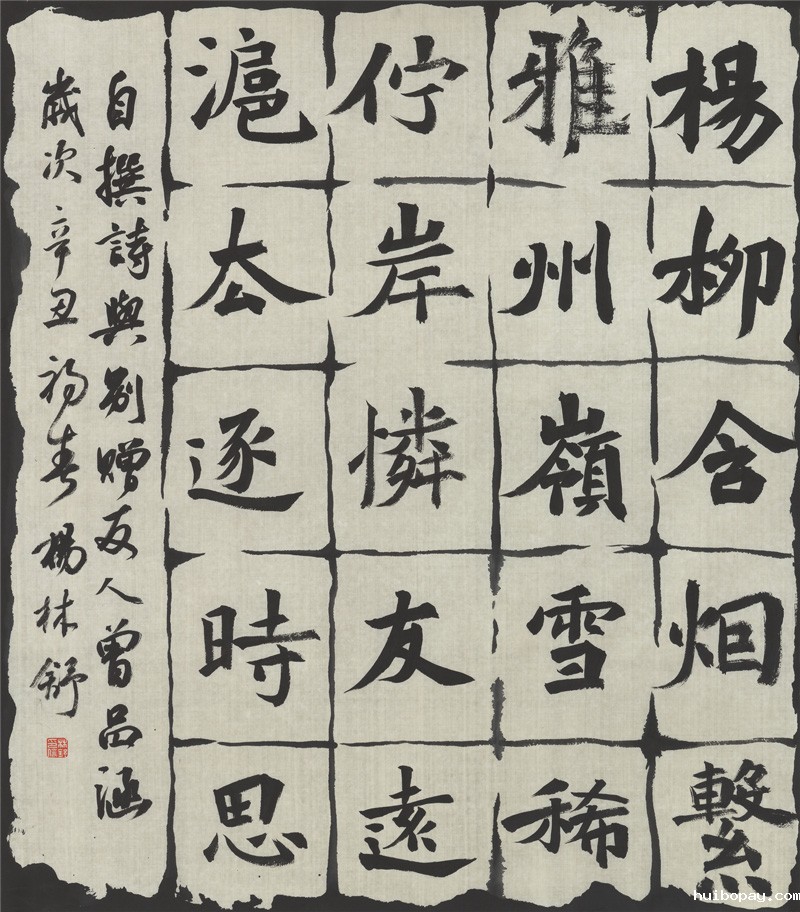 楊柳含烟繫
雅州嶺雪稀
佇岸憐友遠
滬厺逐時思
自撰詩與別贈友人曾品涵
歲次辛丑初春楊林舒
huibopay.com